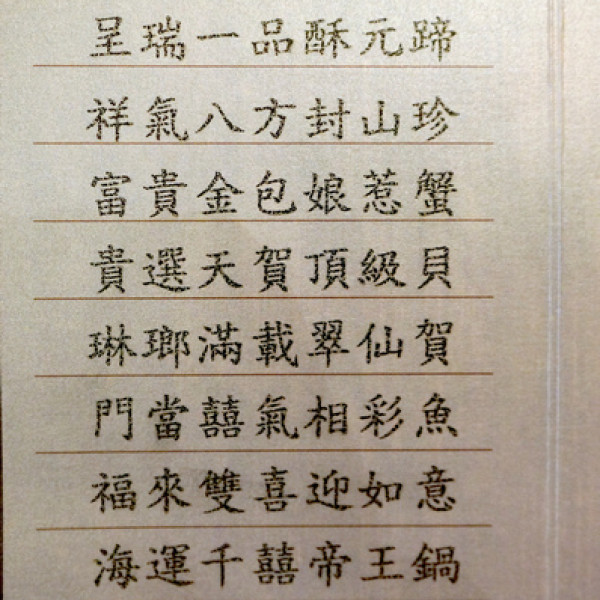 呈瑞一品酥元蹄
祥氣八方封山珍
富貴金包娘惹蟹
貴選天賀頂級貝
琳瑯滿載翠仙賀
門當囍氣相彩魚
福來雙喜迎如意
海運千囍帝王鍋